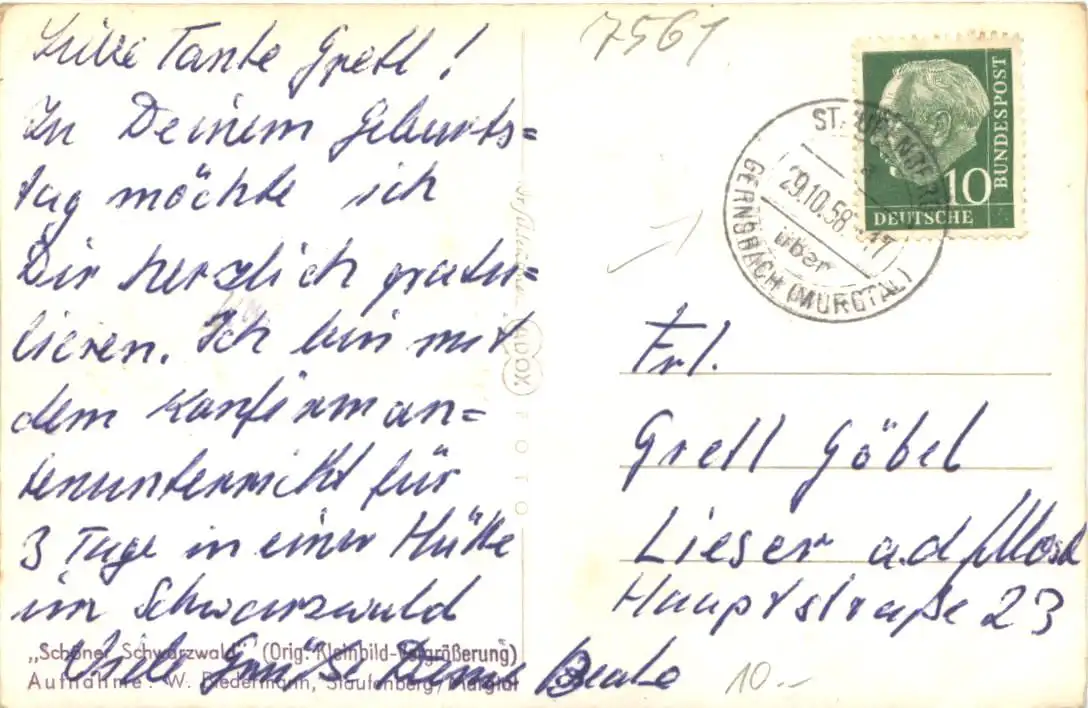 Liebe Tante Gretl!
Zu Deinem Geburts=
tag möchte ich
Dir herzlich gratu=
lieren. Ich bin mit
dem Konfirman=
tenunterricht für
3 Tage in einer Hütte
im Schwarzwald
Viele Grüße Deine Beate
„Schöner Schwarzwald" (Orig. Kleinbild-Vergrößerung)
Aufnahme: W. Biedermann, Staufenberg/Murgtal
ADOX
FOTO
7561
BUNDESPOST
10
DEUTSCHE
ST.
29.10.58
über
GERNSBACH (MURGTAL)
Frl.
Gretl Göbel
Lieser a.d/Mosel
Hauptstraße 23
10.-